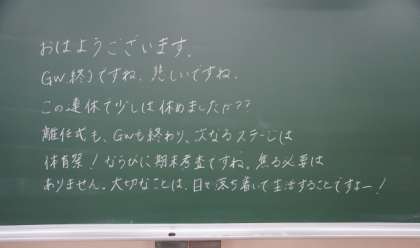 おはようございます。
GW終りですね、悲しいですね、
この連休で少しは休めましたか??
離任式も、GWも終わり、次なるステージは
体育祭!ならびに期末考査ですね。焦る必要は
ありません。大切なことは、日々落ち着いて生活することですよー!